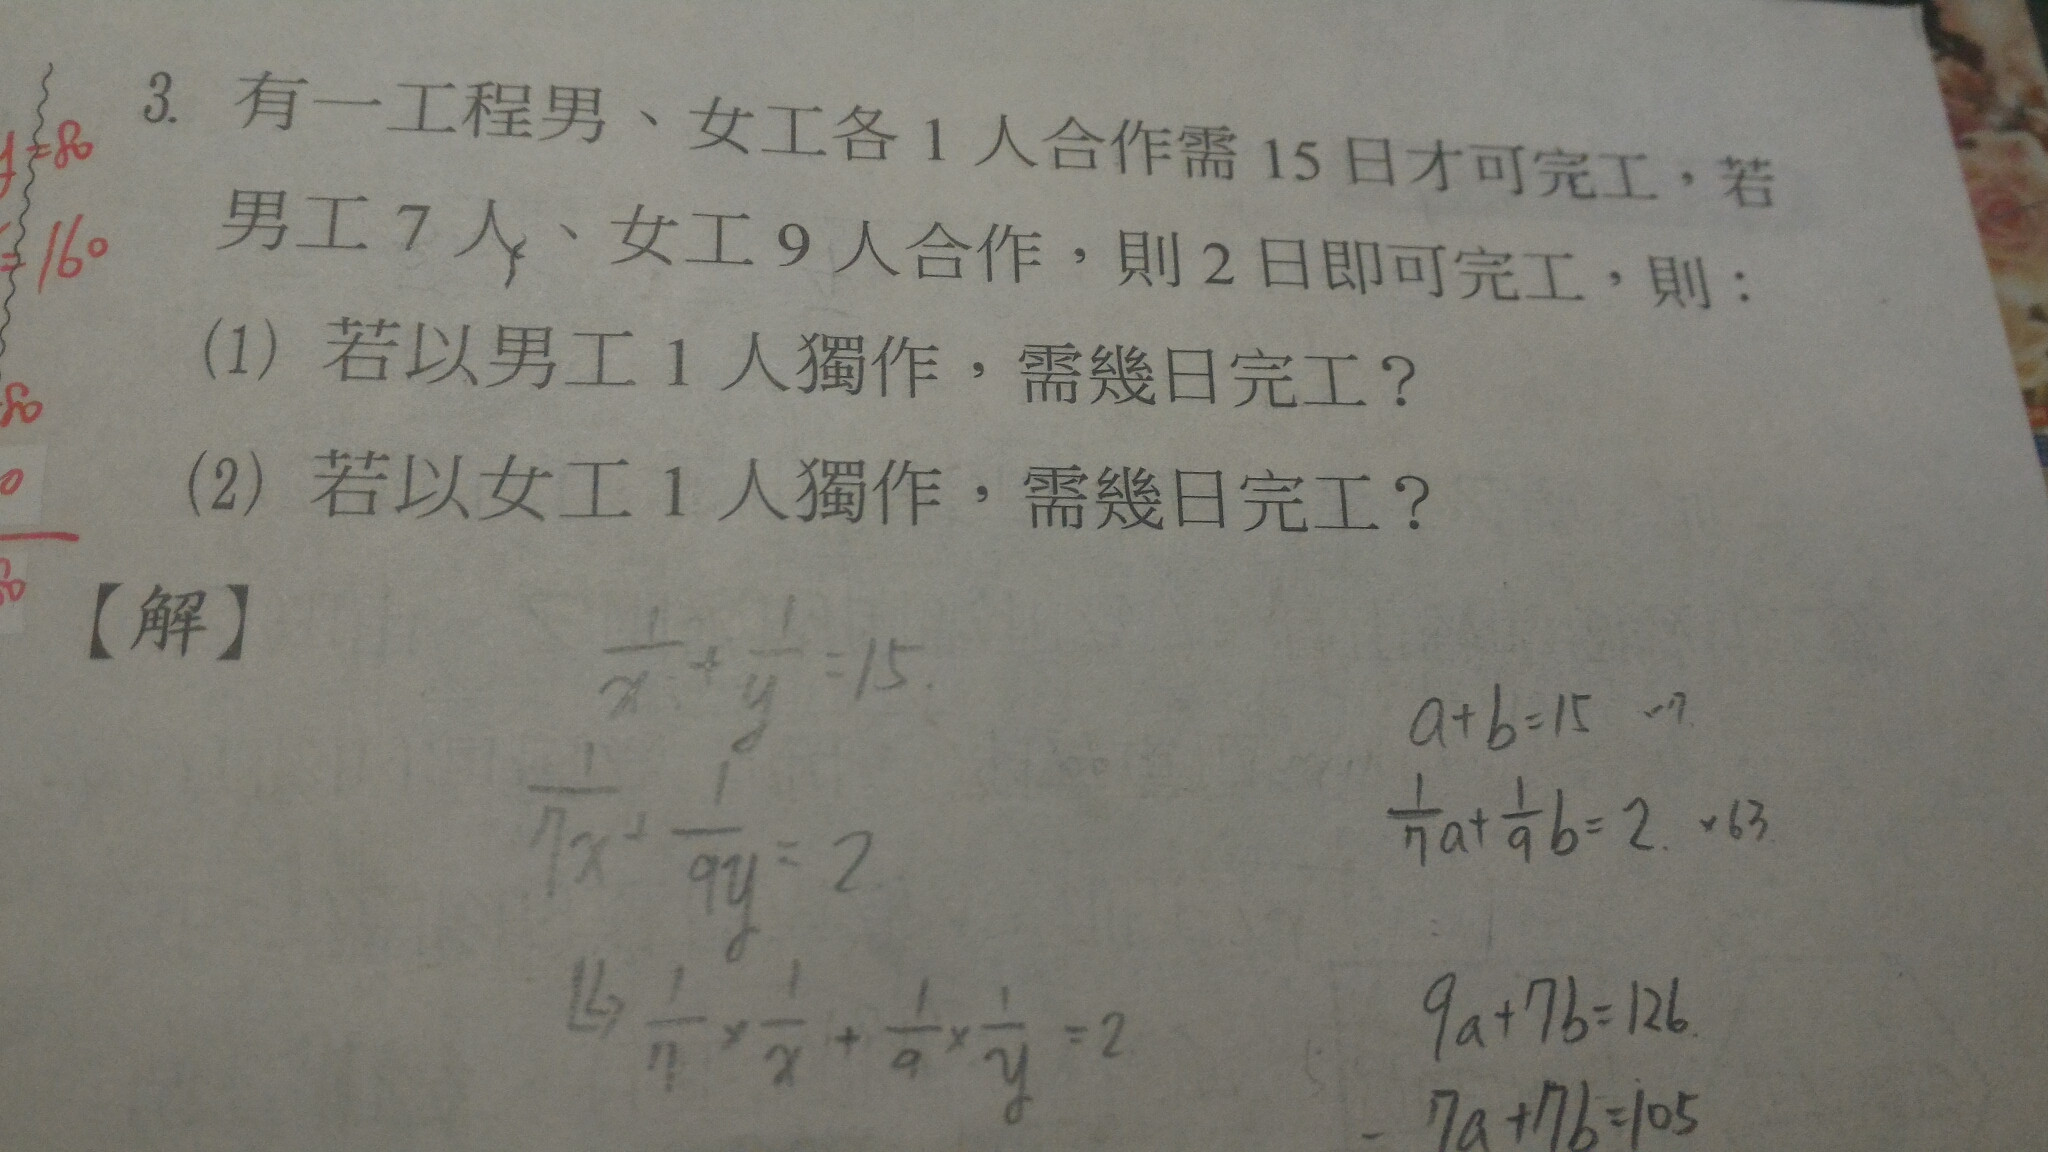 3. 有一工程男、女工各1人合作需15日才可完工，若
男工7人、女工9人合作，則2日即可完工，則：
(1) 若以男工1人獨作，需幾日完工？
(2) 若以女工1人獨作，需幾日完工？
【解】
y=80
=160
80
0
80
1/x + 1/y = 15.
1/7x + 1/9y = 2.
1/7 × 1/x + 1/9 × 1/y = 2.
a+b=15
1/7a+1/9b=2. ×63
9a+7b=126.
- 7a+7b=105